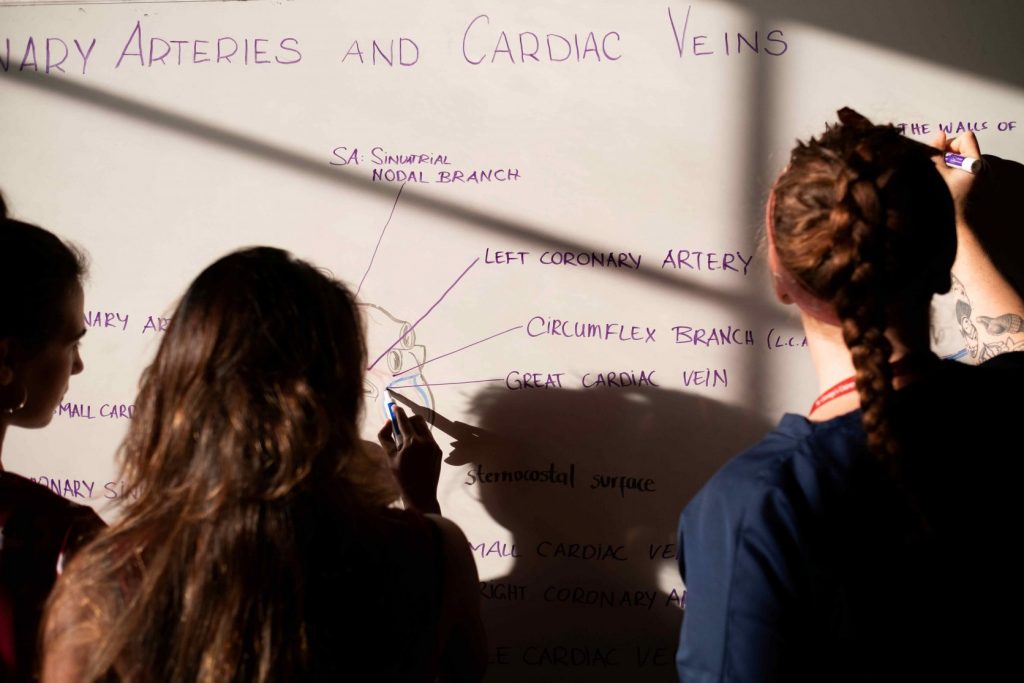 NARY ARTERIES AND CARDIAC VEINS
THE WALLS OF
SA: SINUTRIAL
NODAL BRANCH
LEFT CORONARY ARTERY
NARY AR
CIRCUMFLEX BRANCH (L.C.A
GREAT CARDIAC VEIN
MALL CARD
sternocostal surface
ONARY SIN
MALL CARDIAC VE
RIGHT CORONARY A
LE CARDIAC VE